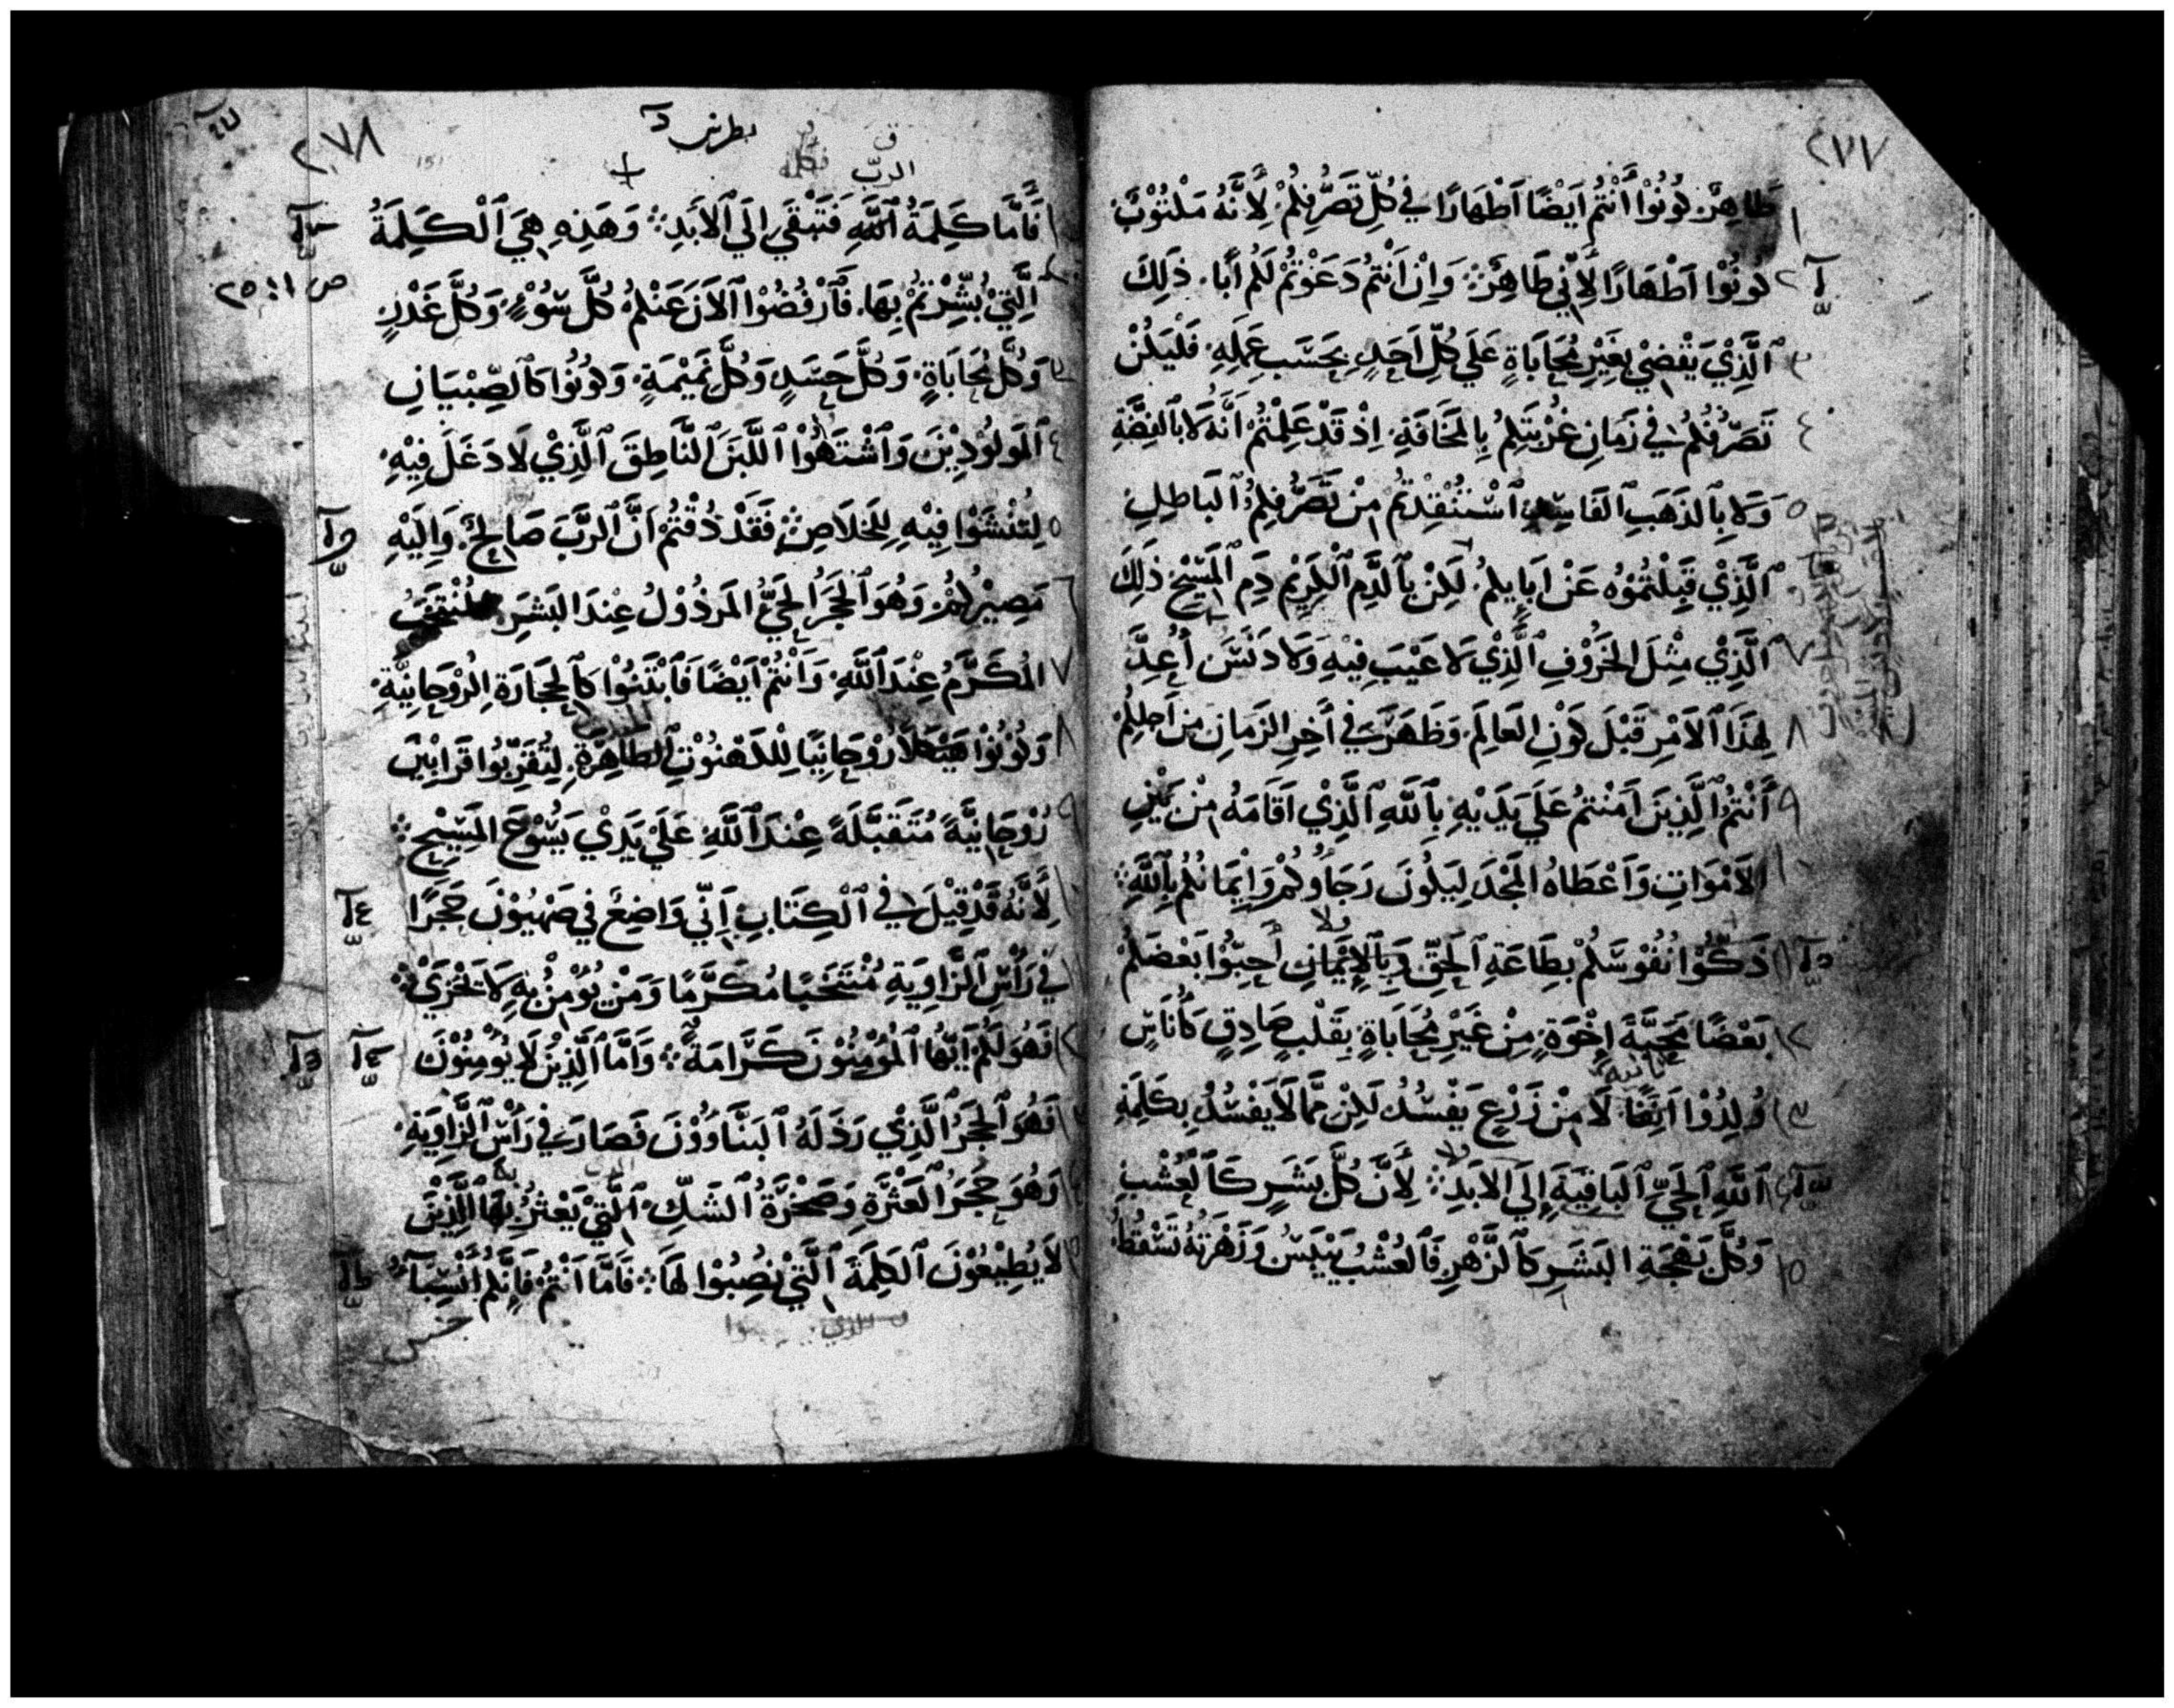 ٢٧٧
١ طَاهِرٌ كُونُوْا أَنْتُمُ ايَضًا اَطْهَارًا فِي كُلِّ تَصَرُّفِكُمْ لِأَنَّهُ مَكْتُوْبٌ
٢ كُونُوْا اَطْهَارًا لِأَنِّي طَاهِرٌ وَاِنْ اَنْتُمُ دَعَوْتُمْ لَكُم اَبًا ذَلِكَ
٣ ٱلَّذِيْ يَقْضِيْ بِغَيْرِ مُحَابَاةٍ عَلَي كُلِّ اَحَدٍ بِحَسَبِ عَمَلِهِ فَلْيَكُنْ
٤ تَصَرُّفُكُمْ فِي زَمَانِ غُرْبَتِكِمُ بِالمَخَافَةِ اِذْ قَدْ عَلِمْتُمْ اَنَّهُ لَا بِٱلفِضَّةِ
٥ وَلَا بِٱلذَهَبِ ٱلفَاسِدِ ٱسْتُنْقِذْتُمْ مِنْ تَصَرُّفِكِمُ ٱلبَاطِلِ
٦ ٱلَّذِيْ قَبِلْتُمُوْهُ عَنْ اَبَايِكُمْ لَكِنْ بِٱلدَّمِ ٱلْكَرِيْمِ دَمِ ٱلمَسِيْحِ ذَلِكَ
٧ ٱلَّذِيْ مِثْلَ الخَرُوْفِ ٱلَّذِيْ لَا عَيْبَ فِيْهِ وَلَا دَنَسَ أُعِدَّ
٨ لِهَذَا ٱلاَمْرِ قَبْلَ كَوْنِ العَالَمِ وَظَهَرَ فِي أَخِرِ الزَمَانِ مِنْ اَجلِكُمْ
٩ أَنْتُمُ ٱلَّذِيْنَ اَمَنْتُمُ عَلَي يَدَيْهِ بِٱللَّهِ ٱلَّذِيْ اَقَامَهُ مِنْ بَيْنِ
١٠ الاَمْوَاتِ وَاَعْطَاهُ المَجْدَ لِيَكُونَ رَجَاؤُكُمْ وَاِيْمَانُكُمْ بِٱللَّهِ
١١ ذَكُّوْا نُفُوْسَكُمْ بِطَاعَةِ ٱلحَقِّ وَبِٱلإِيْمَانِ اَحِبُّوْا بَعْضَكُمْ
١٢ بَعْضًا مَحَبَّةَ إِخْوَةٍ مِنْ غَيْرِ مُحَابَاةٍ بِقَلْبٍ صَادِقٍ كَأُنَاسٍ
١٣ وُلِدُوْا اَنِفًا لَا مِنْ زَرْعٍ يَفْسُدُ لَكِنْ مِمَّا لَا يَفْسُدُ بِكَلِمَةِ
١٤ ٱللَّهِ ٱلحَيِّ ٱلبَاقِيَةِ إِلَي الاَبَدِ لِأَنَّ كُلَّ بَشَرٍ كَٱلعُشْبِ
١٥ وَكُلَّ بَهْجَةِ البَشَرِ كَٱلزَّهْرِ فَٱلعُشْبُ يَيْبَسُ وَزَهْرَتُهُ تَسْقُطُ
٢٧٨
بطرس
الربّ
١ فَأَمَّا كَلِمَةُ ٱللَّهِ فَتَبْقَي اِلَي ٱلاَبَدِ وَهَذِهِ هِيَ ٱلْكَلِمَةُ
ص ١ : ٢٥
٢ اَلَّتِيْ بُشِّرْتُمْ بِهَا فَٱرْفُضُوْا ٱلاَنَ عَنْكُمُ كُلَّ سُوْءٍ وَكُلَّ غَدْرٍ
٣ وَكُلَّ مُحَابَاةٍ وَكُلَّ حَسَدٍ وَكُلَّ نَمِيْمَةٍ وَكُونُوْا كَٱلصِّبْيَانِ
٤ ٱلمَولُوْدِيْنَ وَٱشْتَهُوْا ٱللَّبَنَ ٱلنَّاطِقَ ٱلَّذِيْ لَا دَغَلَ فِيْهِ
٥ لِتَنْشَوْا فِيْهِ لِلخَلَاصِ فَقَدْ ذُقْتُمْ اَنَّ ٱلرَّبَّ صَالِحٌ وَاِلَيْهِ
٦ مَصِيْرُكُمْ وَهُوَ ٱلحَجَرُ الحَيُّ المَرذُوْلُ عِنْدَ البَشَرِ المُنْتَخَبُ
٧ المُكَرَّمُ عِنْدَ ٱللَّهِ وَاَنْتُمْ اَيْضًا فَٱبْتَنُوْا كَٱلحِجَارَةِ الرُوْحَانِيَّةِ
٨ وَكُونُوْا هَيْكَلًا رُوْحَانِيًا لِلْكَهْنُوْتِ ٱلطاهِرَةِ لِتُقَرِّبُوْا قَرَابِيْنَ
٩ رُوْحَانِيَّةً مُتَقَبَّلَةً عِنْدَ ٱللَّهِ عَلَيْ يَدَيْ يَسُوْعَ المَسِيْحِ
١٠ لِأَنَّهُ قَدْ قِيْلَ فِي ٱلْكِتَابِ اِنِّي وَاضِعٌ فِي صِهْيُوْنَ حَجَرًا
١١ فِي رَأْسِ ٱلزَّاوِيَةِ مُنْتَخَبًا مُكَرَّمًا وَمَنْ يُؤْمِنُ بِهِ لَا يَخْزَيْ
١٢ فَهُوَ لَكُمْ اَيُّهَا ٱلمُؤْمِنُوْنَ كَرَامَةٌ وَاَمَّا ٱلَّذِيْنَ لَا يُؤْمِنُوْنَ
١٣ فَهُوَ ٱلحَجَرُ ٱلَّذِيْ رَذَلَهُ ٱلبَنَّاوُوْنَ فَصَارَ فِي رَأْسِ ٱلزَّاوِيَةِ
١٤ وَهُوَ حَجَرُ ٱلعَثْرَةِ وَصَخْرَةُ ٱلشَكِّ ٱلَّتِيْ يَعْثُرُ بِهَا ٱلَّذِيْنَ
١٥ لَا يُطِيْعُوْنَ ٱلكَلِمَةَ ٱلَّتِيْ نُصِبُوْا لَهَا فَامَّا اَنْتُمْ فَاِنَّكُم اَنْسِبَآءُ
جنس